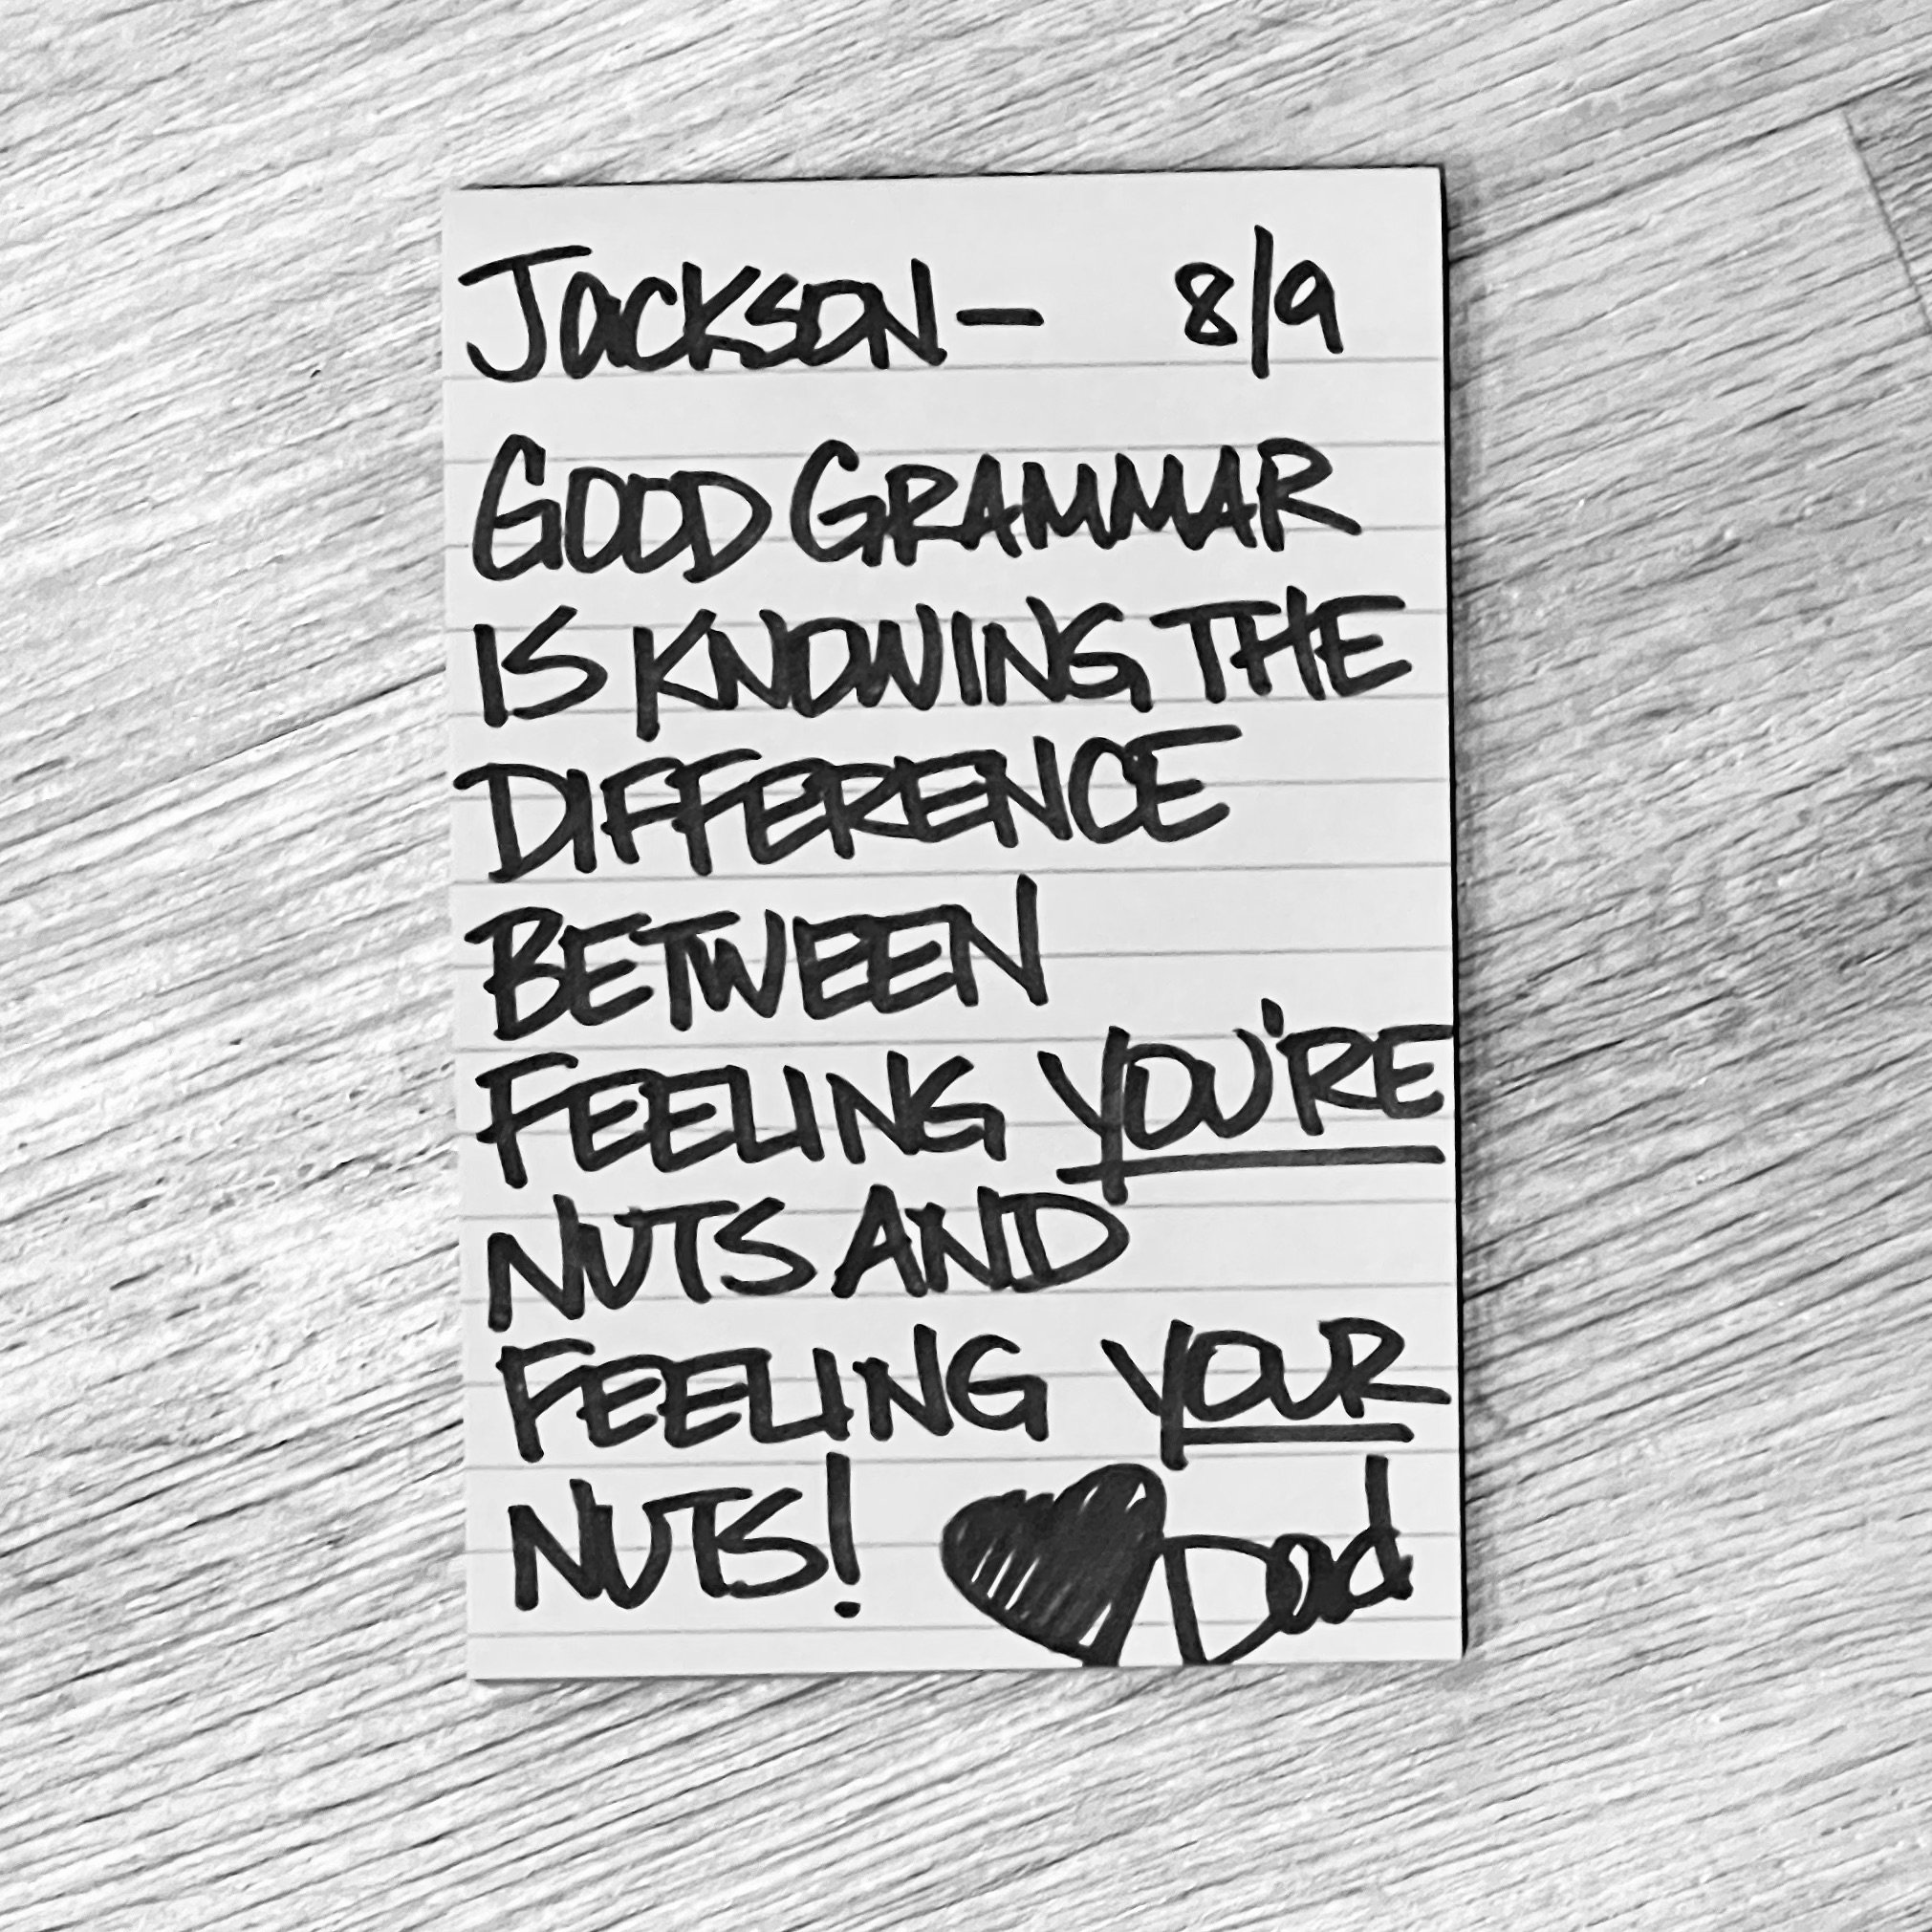 Jackson— 8/9
GOOD GRAMMAR
IS KNOWING THE
DIFFERENCE
BETWEEN
FEELING YOU'RE
NUTS AND
FEELING YOUR
NUTS! ♥ Dad